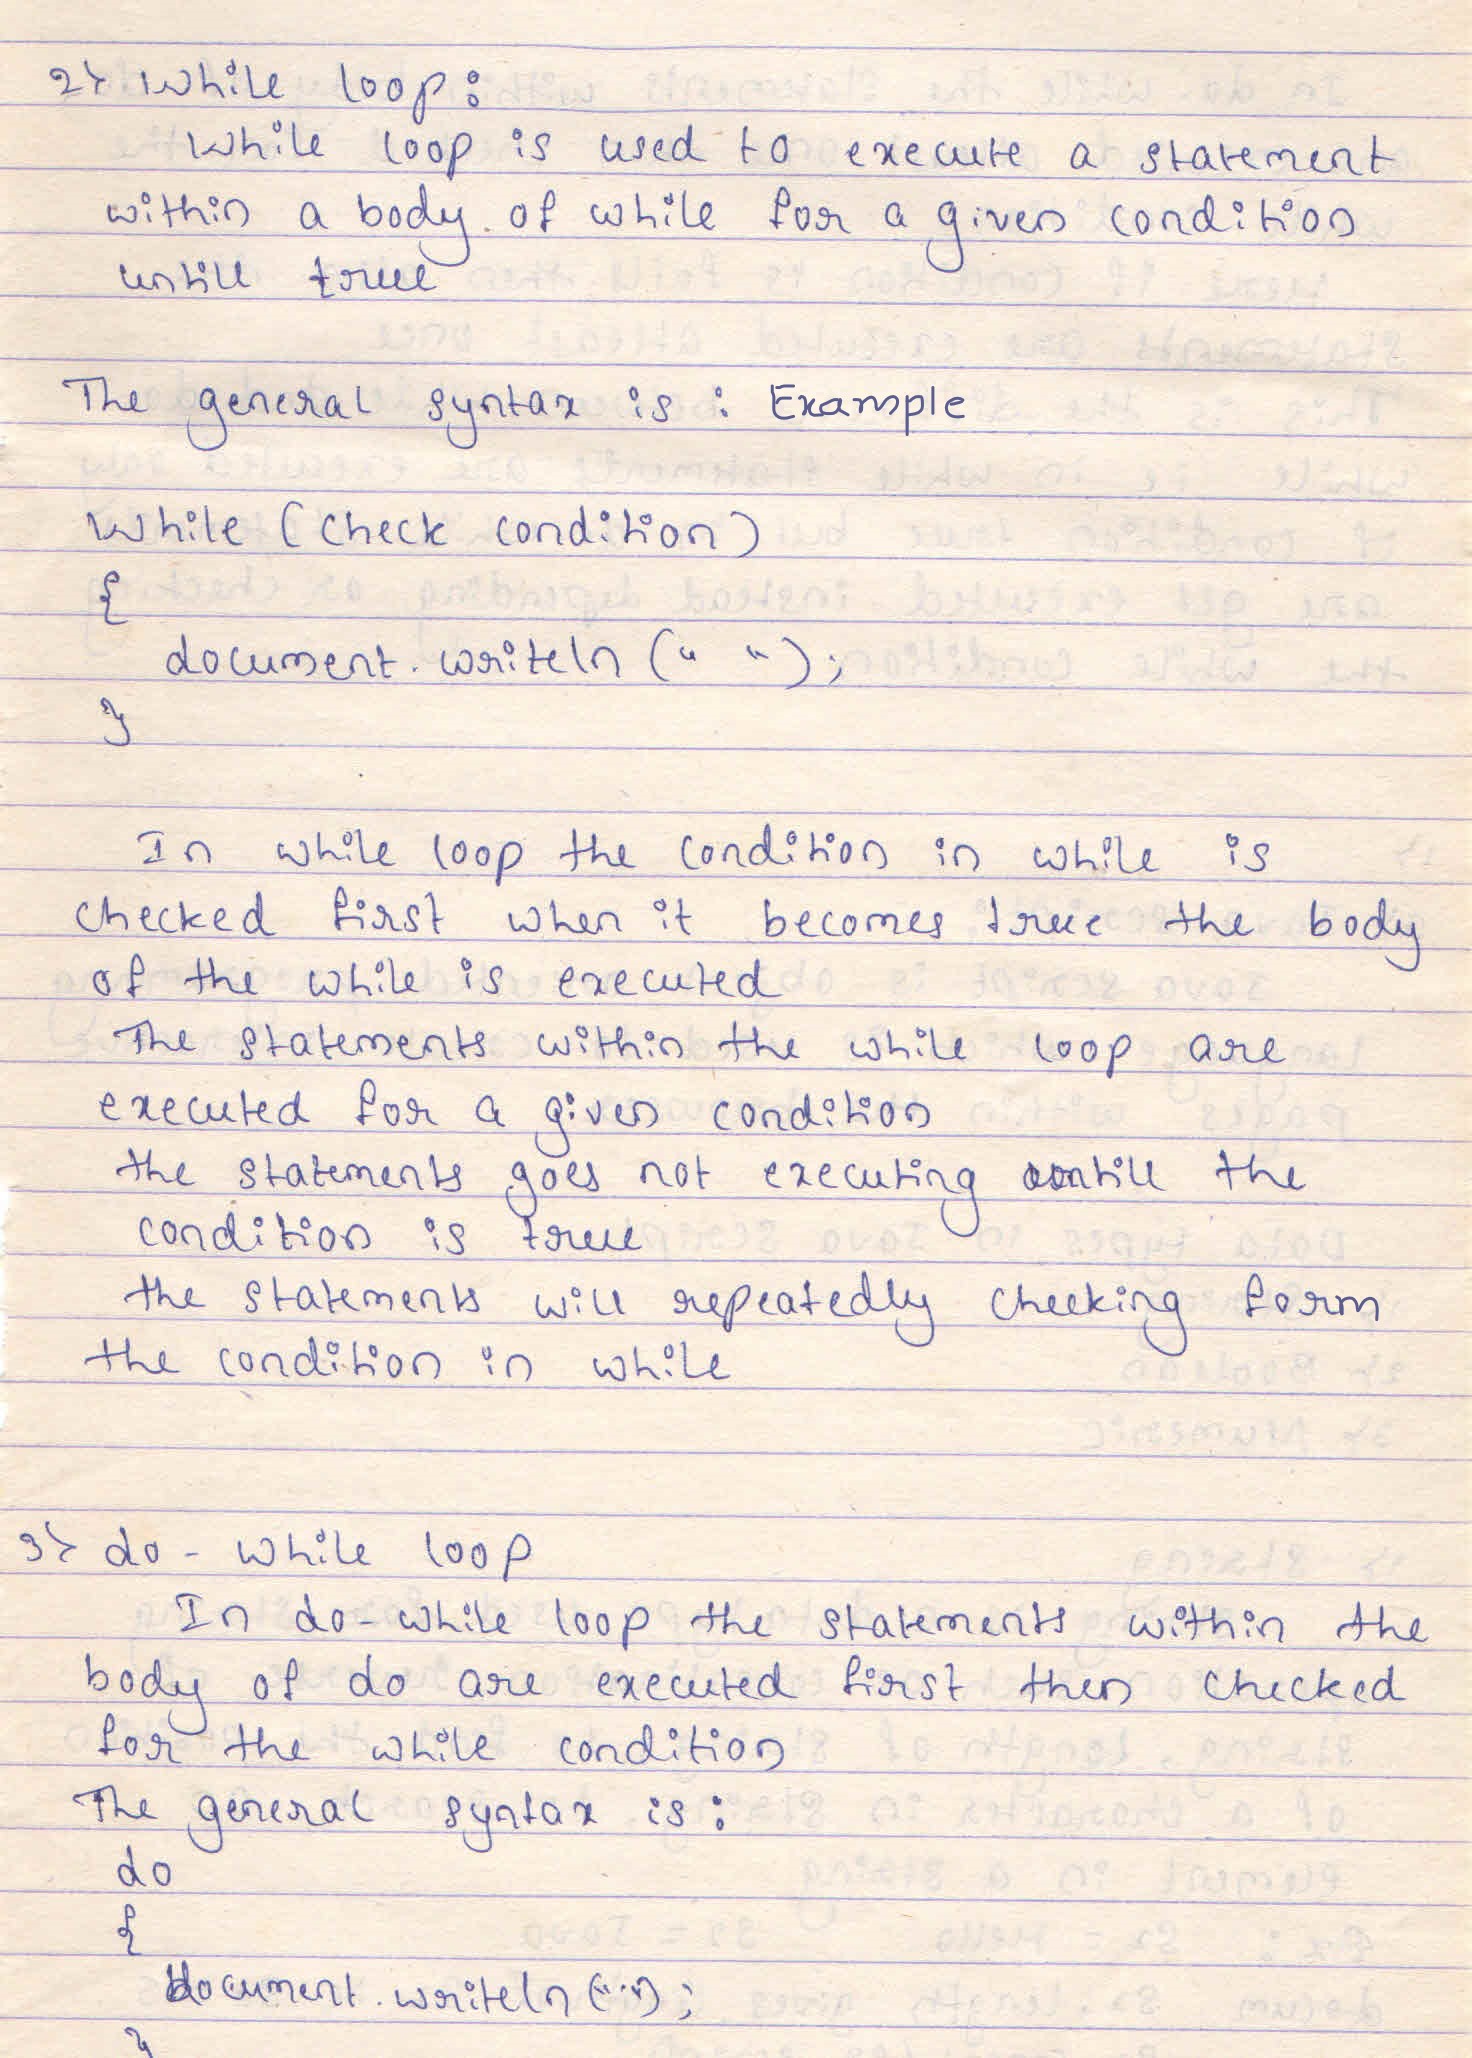 2> While loop:
While loop is used to execute a statement
within a body of while for a given condition
untill true
The general syntax is: Example
While (check condition)
{
document.writeln (" ");
}
In while loop the condition in while is
checked first when it becomes true the body
of the while is executed
The statements within the while loop are
executed for a given condition
the statements goes not executing untill the
condition is true
the statements will repeatedly checking form
the condition in while
3> do - while loop
In do-while loop the statements within the
body of do are executed first then checked
for the while condition
The general syntax is:
do
{
document.writeln("..");
}